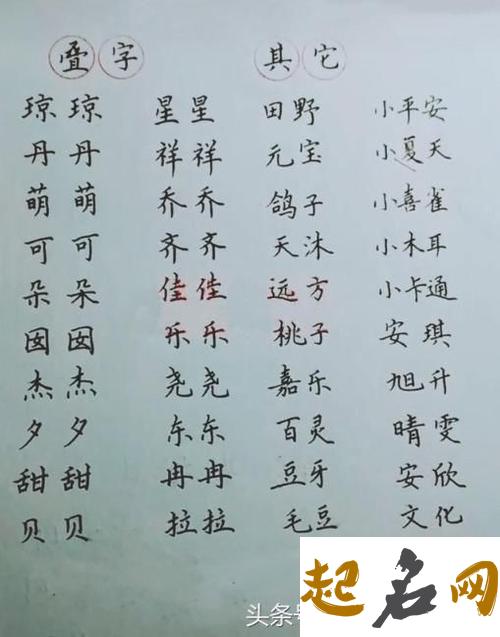 叠字 其它
琼琼 星星 田野 小平安
丹丹 祥祥 元宝 小夏天
萌萌 乔乔 鸽子 小喜雀
可可 齐齐 天沐 小木耳
朵朵 佳佳 远方 小卡通
囡囡 乐乐 桃子 安琪
杰杰 尧尧 嘉乐 旭升
夕夕 东东 百灵 晴雯
甜甜 冉冉 豆牙 安欣
贝贝 拉拉 毛豆 文化
起名网
头条号